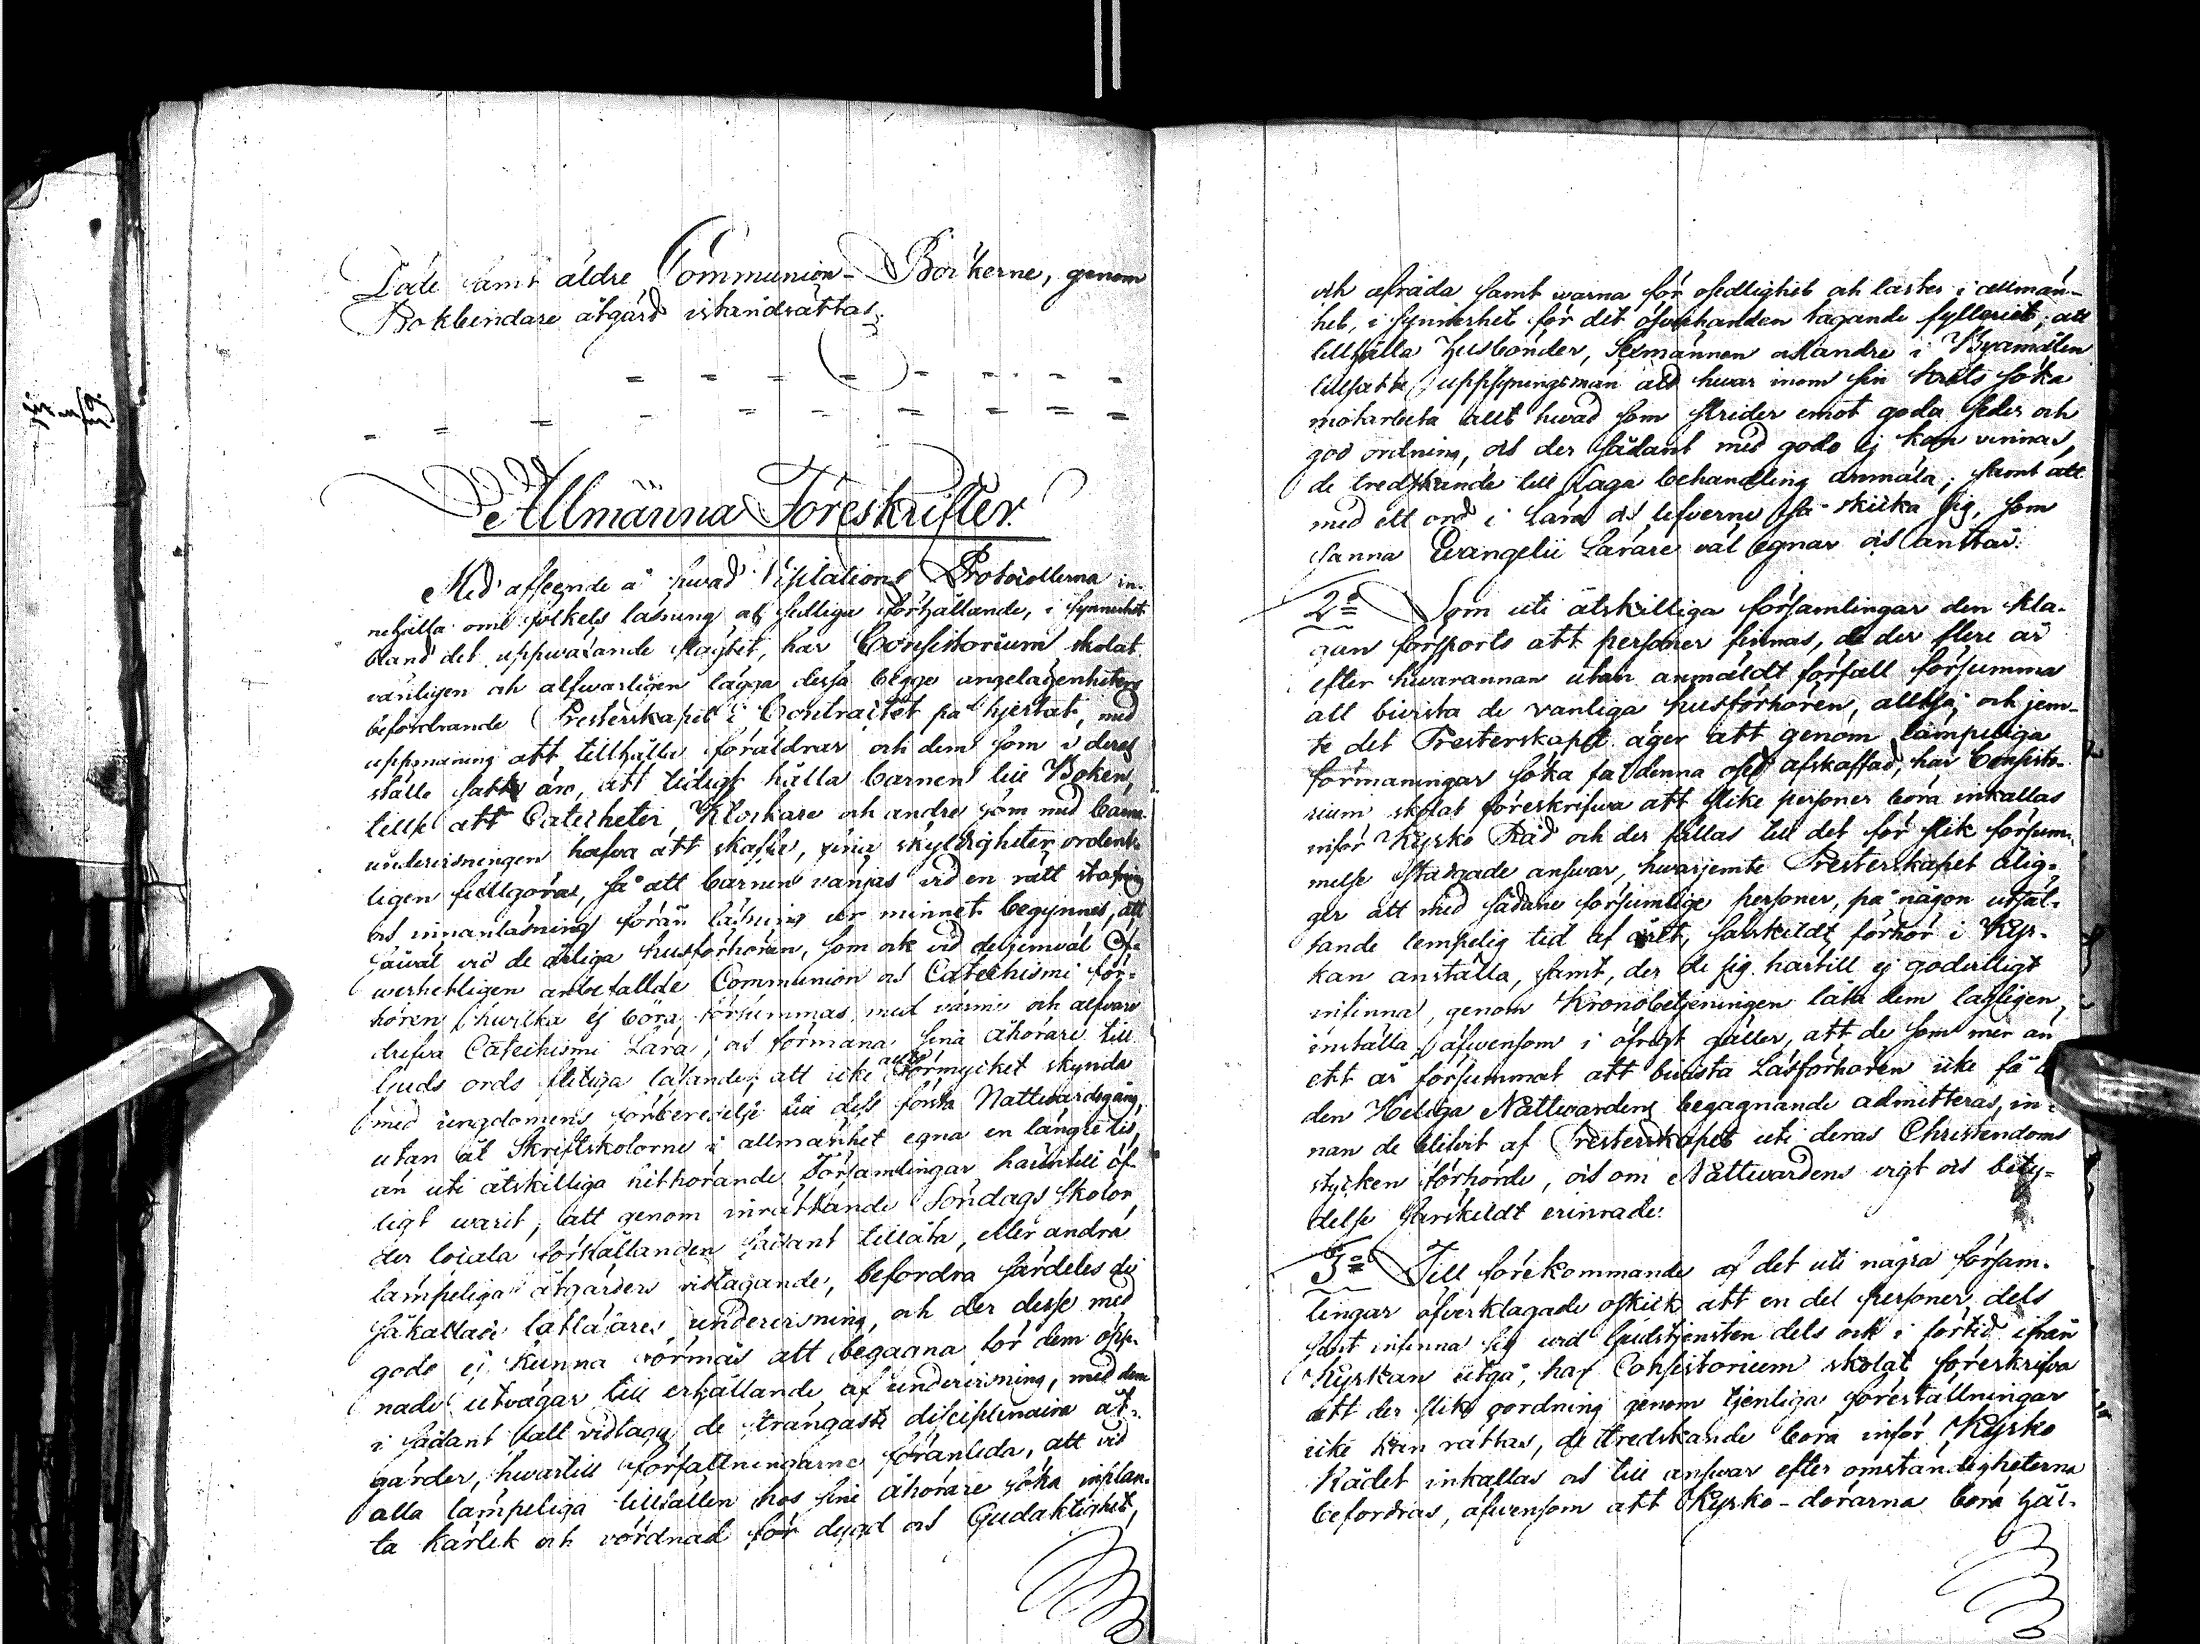 Lade samt äldre Communion-Böckerne, genom
Bokbindare åtgärd istandsättas.
Allmänna Föreskrifter.
Med afseende å hwad Visitations Protocollerna in-
nehålla om folkets läsning och sedliga förhållande, i synnerhet
bland det uppwäxande slägtet, har Consistorium skolat
vänligen och alfwarligen lägga dessa begge angelägenheters
befordrande Presterskapet i Contractet på hjertat, med
uppmaning att tillhålla föräldrar och dem som i deras
ställe satte äro, att tidigt hålla barnen till Boken,
tillse att Catecheter, Klockare och andre som med barna
underwisningen hafva att skaffa, sina skyldigheter ordent-
ligen fullgöra, så att barnen vänjas vid en rätt stafning
och innanläsning förän läsning ur minnet begynnes, att
såwäl vid de årliga husförhören, som ock vid de jemväl Öf-
werhetligen anbefallde Communion och Catechismi för-
hören hwilka ej böra försummas, med värme och alfvare
drifva Catechismi Lära, och förmana sina åhörare till
Guds ords flitiga läsande; att icke allt förmycket skynda
med ungdomens förberedelse till dess första Nattwardsgång,
utan åt Skriftskolorne i allmänhet egna en längre tid,
än uti åtskilliga hithörande Församlingar härintill öf-
ligt warit, att genom inrättande Söndags Skolor
der locala förhållanden sådant tillåta, eller andra
lämpeliga åtgärders vidtagande, befordra särdeles de
såkallade lätlärares underwisning, och der desse med
godo ej kunna förmås att begagna för dem öpp-
nade utvägar till erhållande af underwisning, med dem
i sådant fall vidtaga de strängaste disciplinaira åt-
gärder, hwartill författningarne föranleda, att vid
alla lämpeliga tillfällen hos sine åhörare söka inplan-
ta kärlek och vördnad för dygd och Gudaktighet,
och afråda samt warna för osedlighet och laster i allmän-
het, i synnerhet för det öfverhanden tagande fylleriet; att
tillhålla Husbönder, Sexmännen och andre i Byamålen
tillsatte uppsyningsmän att hwar inom sin krets söka
motarbeta allt hwad som strider emot goda seder och
god ordning, och der sådant med godo ej kan vinnas,
de tredskande till Laga behandling anmäla, samt att
med ett ord i Lära och lefverne så skicka sig, som
sanna Evangelii Lärare väl egnar och anstår.
2o Som uti åtskilliga församlingar den kla-
gan försports att personer finnas, de der flere år
efter hwarannan utan anmäldt förfall försumma
att biwista de vanliga husförhören, alltså, och jem-
te det Presterskapet äger att genom lämpeliga
förmaningar söka få denna osed afskaffad, har Consisto-
rium skolat föreskrifwa att slike personer böra inkallas
inför Kyrko Råd och der fällas till det för slik försum-
melse stadgade answar, hwarjemte Presterskapet ålig-
ger att med sådane försumlige personer, på någon utsät-
tande lempelig tid af året, särskildt förhör i Kyr-
kan anställa, samt, der de sig härtill ej godwilligt
infinna, genom Kronobetjeningen låta dem lagligen
inställa, äfwensom i öfrigt gäller, att de som mer än
ett år försummat att biwista Läsförhören icke få
den Heliga Nattwardens begagnande admitteras, in-
nan de blifvit af Presterskapet uti deras Christendoms
stycken förhörde, och om Nattwardens vigt och bety-
delse särskildt erinrade.
3o Till förekommande af det uti några försam-
lingar öfverklagade oskick att en del personer, dels
sent infinna sig wid Gudstjensten dels ock i förtid ifrån
Kyrkan utgå, har Consistorium skolat föreskrifva
att der slik oordning genom tjenliga föreställningar
icke kan rättas, de tredskande böra inför Kyrko
Rådet inkallas och till answar efter omständigheterna
befordras, äfwensom att Kyrko-dörarna böra hål-